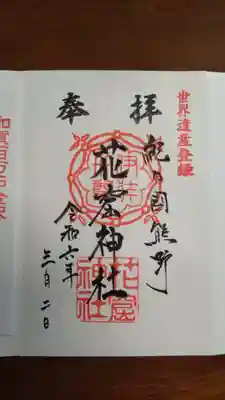 世界遺産登録
奉拝
紀の国熊野
花窟神社
令和六年
三月二日
花窟
神社